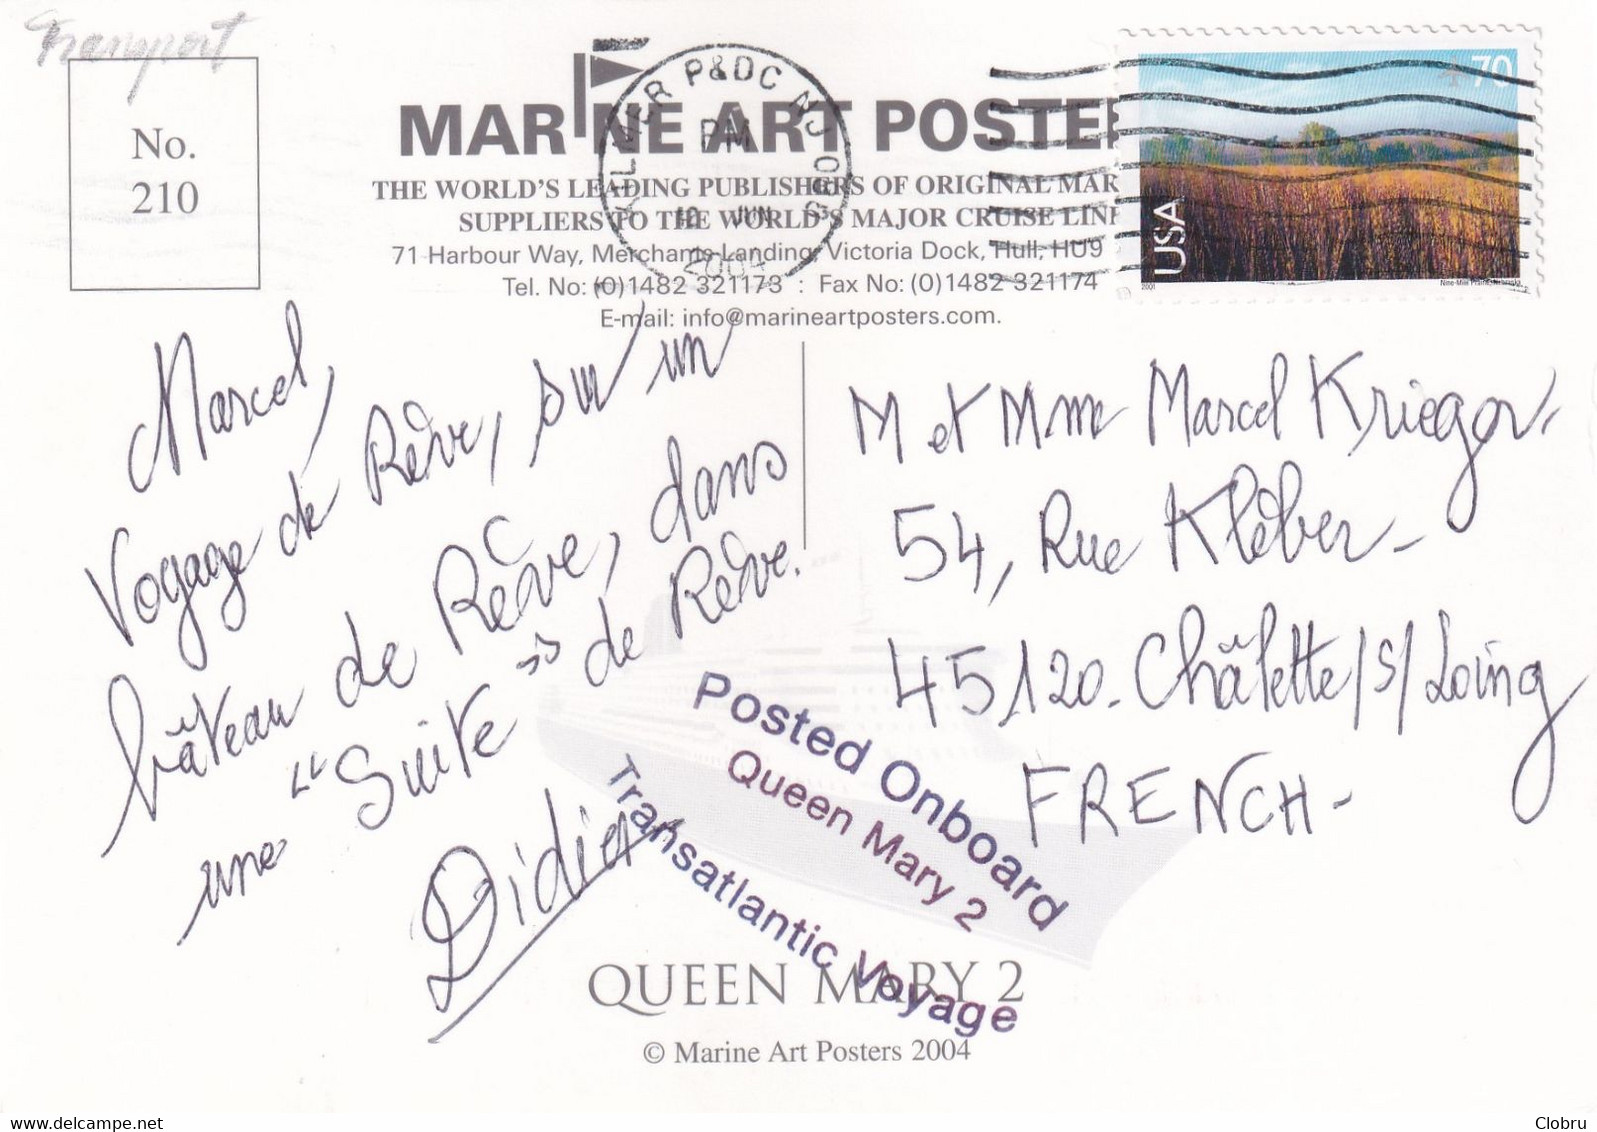 Transport
No.
210
MARINE ART POSTE
THE WORLD'S LEADING PUBLISHERS OF ORIGINAL MAR
SUPPLIERS TO THE WORLD'S MAJOR CRUISE LIN
71 Harbour Way, Merchants Landing, Victoria Dock, Hull, HU9
Tel. No: (0)1482 321173 : Fax No: (0)1482 321174
E-mail: info@marineartposters.com.
KILMER P&DC NJ 089
PM
JUN
70
USA
2001
Nine-Mile Prairie, Nebraska
Marcel,
Voyage de Rêve, sur un
bâteau de Rêve, dans
une "Suite" de Rêve.
Didier
M et Mme Marcel Krieger.
54, Rue Kléber -
45120. Châlette/s/Loing
FRENCH -
Posted Onboard
Queen Mary 2
Transatlantic Voyage
QUEEN MARY 2
© Marine Art Posters 2004
delcampe.net
Clobru